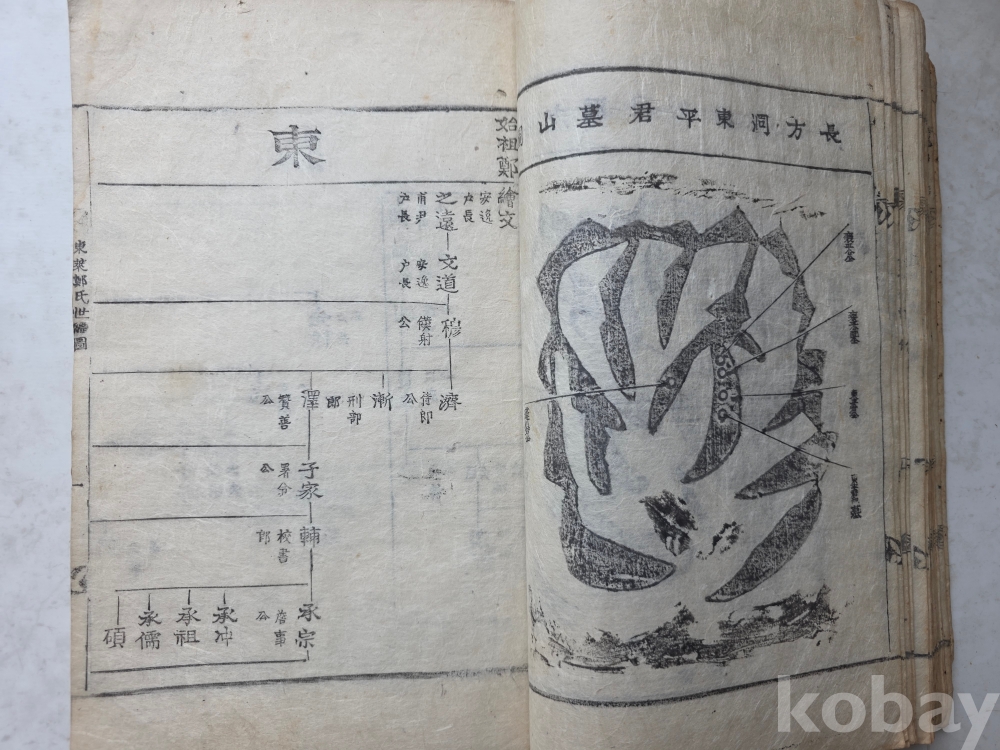 長方洞東平君墓山
東
始祖鄭繪文
安逸
戶長
之遠
甫尹
戶長
文道
安逸
戶長
穆
僕射
公
濟
侍郎
公
漸
刑部
郎
澤
贊善
公
子家
署令
公
輔
校書
郎
承宗
詹事
公
承冲
承祖
承儒
碩
東萊鄭氏世譜圖
kobay